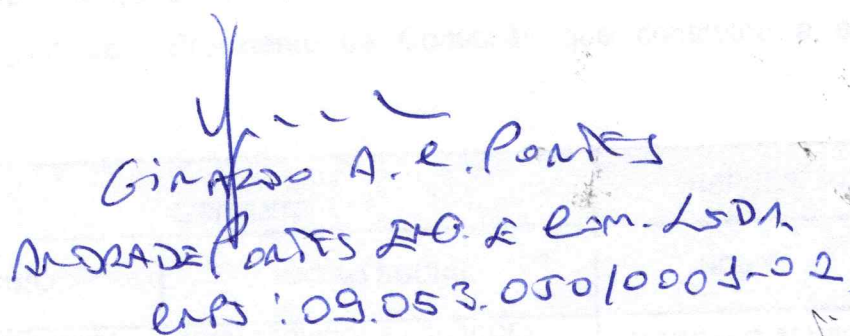 GIRARDO A. C. PONTES
ANDRADE PONTES ENG. E COM. LTDA
CNPJ: 09.053.050/0001-02